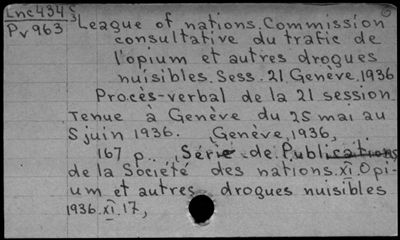 Lnc434S
Pv963
League of nations. Commission
consultative du trafic de
l'opium et autres drogues
nuisibles. Sess. 21 Genève. 1936
Procès-verbal de la 21 session.
Tenue à Genève du 25 mai au
5 juin 1936. Genève, 1936,
167 p. (Série de Publications
de la Société des nations. XI. Opi-
um et autres drogues nuisibles
1936. XI. 17,